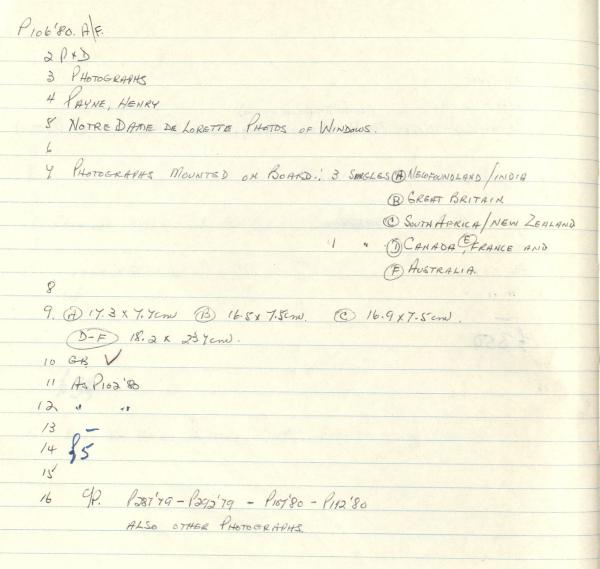 P106'80. A/F.
2 P & D
3 PHOTOGRAPHS
4 PAYNE, HENRY
5 NOTRE DAME DE LORETTE PHOTOS OF WINDOWS.
6
7 PHOTOGRAPHS MOUNTED ON BOARD: 3 SINGLES (A) NEWFOUNDLAND/INDIA
(B) GREAT BRITAIN
(C) SOUTH AFRICA/NEW ZEALAND
1 " (D) CANADA, (E) FRANCE AND
(F) AUSTRALIA.
8
9. (A) 17.3 x 7.7cm (B) 16.5 x 7.5cm. (C) 16.9 x 7.5cm.
(D-F) 18.2 x 23.7cm.
10 GB ✓
11 AS P102'80
12 " "
13 –
14 £5
15
16 C/P. P287'79 – P292'79 – P107'80 – P142'80
ALSO OTHER PHOTOGRAPHS.